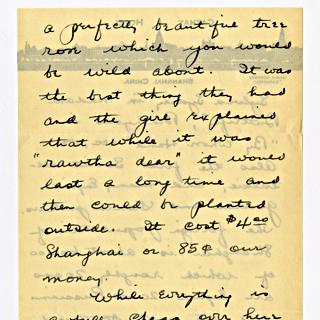 a perfectly beautiful tree
ron which you would
be wild about. It was
the best thing they had
and the girl explained
that while it was
"rawtha dear" it would
last a long time and
then could be planted
outside. It cost $4.00
Shanghai or 85¢ our
money.
While everything is
cheap over here